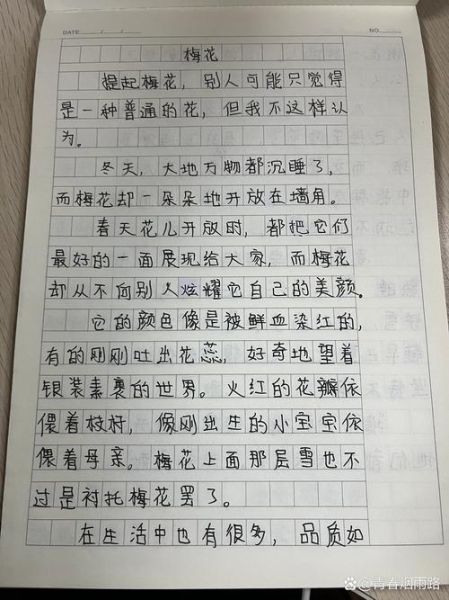 DATE / /
NO.
梅花
提起梅花，别人可能只觉得
是一种普通的花，但我不这样认
为。
冬天，大地万物都沉睡了，
而梅花却一朵朵地开放在墙角。
春天花儿开放时，都把它们
最好的一面展现给大家，而梅花
却从不向别人炫耀它自己的美颜。
它的颜色像是被鲜血染红的，
有的刚刚吐出花蕊，好奇地望着
银装素裹的世界。火红的花瓣依
偎着枝杆，像刚出生的小宝宝依
偎着母亲。梅花上面那层雪也不
过是衬托梅花罢了。
在生活中也有很多，品质如
青春烟雨路